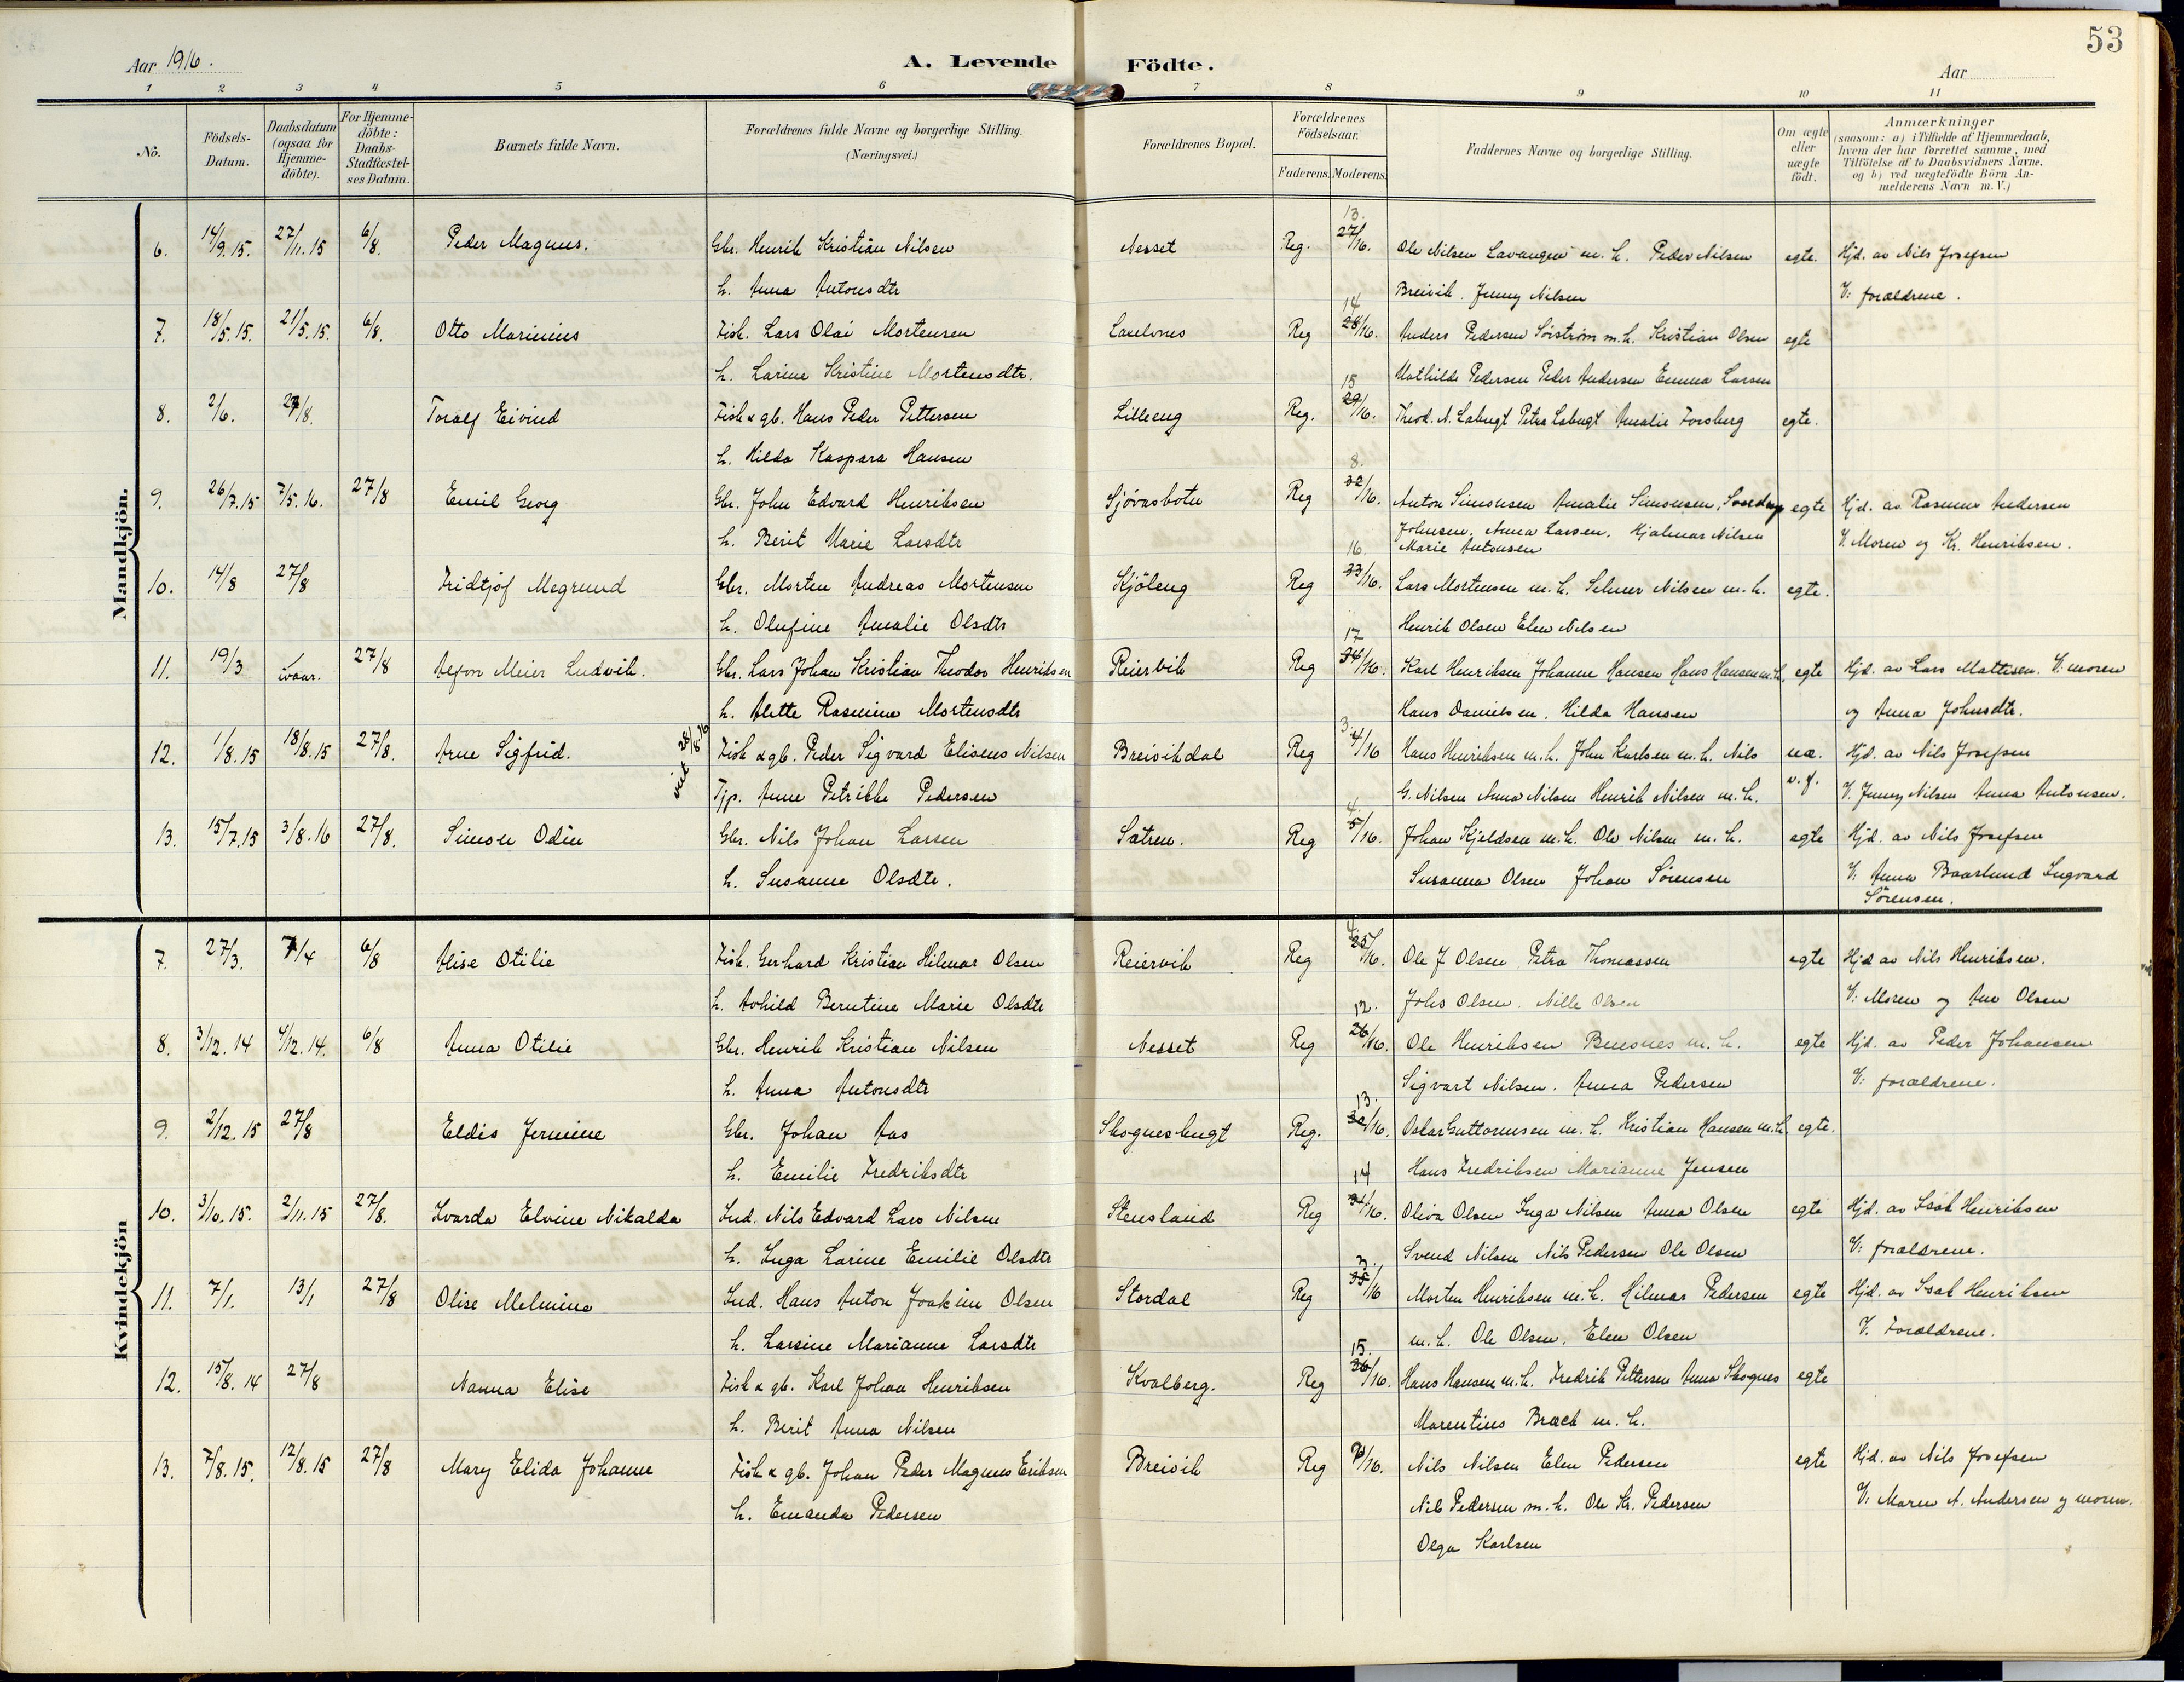 53
Aar 1916. A. Levende Födte. Aar
1 2 3 4 5 6 7 8 9 10 11
No. Födsels-Datum. Daabsdatum (ogsaa for Hjemme-döbte). For Hjemme-döbte: Daabs-Stadfæstel-ses Datum. Barnets fulde Navn. Forældrenes fulde Navne og borgerlige Stilling. (Næringsvei.) Forældrenes Bopæl. Forældrenes Födselsaar. Faderens. Moderens. Faddernes Navne og borgerlige Stilling. Om ægte eller uægte födt. Anmærkninger (saasom: a) i Tilfælde af Hjemmedaab, hvem der har forrettet samme, med Tilföielse af to Daabsvidners Navne, og b) ved uægtefödte Börn An-melderens Navn m. V.)
Mandkjön.
13.
6. 14/9.15. 27/11.15 6/8. Peder Magnus. Gbr. Henrik Kristian Nilsen Nesset Reg. 27/16. Ole Nilsen Lavangen m. h. Peder Nilsen egte. Hjd. av Nils Josefsen
h. Anna Antonsdtr Breivik. Jenny Nilsen V: forældrene.
14
7. 18/5.15. 21/5.15. 6/8. Otto Marinius Fisk. Lars Olai Mortensen Laxelvnes Reg 28/16. Anders Pedersen Sörström m. h. Kristian Olsen egte
h. Larine Kristine Mortensdtr. Mathilde Pedersen Peder Andersen Emma Larsen
15
8. 2/6. 27/8. Toralf Eivind Fisk & gb. Hans Peder Pettersen Lilleeng Reg. 29/16. Theod. N. Labugt Petra Labugt Amalie Forsberg egte.
h. Hilda Kaspara Hansen
8.
9. 26/7.15 7/5.16. 27/8 Emil Georg Gbr. John Edvard Henriksen Sjövasbotn Reg 32/16. Anton Simonsen Amalie Simonsen, egte Hjd. av Rasmus Andersen
h. Berit Marie Larsdtr Johnsen, Anna Larsen, Hjalmar Nilsen V. Moren og Kr. Henriksen.
16. Marie Antonsen
10. 14/8 27/8 Fridtjof Megrund Gbr. Morten Andreas Mortensen Kjöleng Reg 33/16. Lars Mortensen m. h. Selmer Nilsen m. h. egte.
h. Olufine Amalie Olsdtr Henrik Olsen Elen Nilsen
17
11. 19/3 ivaar. 27/8 Alfon Meier Ludvik. Gbr. Lars Johan Kristian Theodor Henriksen Reiervik Reg 34/16. Karl Henriksen Johanne Hansen Hans Hansen m. h. egte Hjd. av Lars Mattisen. V: moren
h. Alette Rasmine Mortensdtr Hans Danielsen, Hilda Hansen og Anna Johnsdtr.
3.
12. 1/8.15 18/8.15 27/8. Arne Sigfrid. viet 28/8.16 Fisk & gb. Peder Sigvard Eliseus Nilsen Breivikdal Reg 4/16 Hans Henriksen m. h. John Karlsen m. h. Nils uæ. Hjd. av Nils Josefsen
Tjp. Anne Petrikke Pedersen G. Nilsen Anna Nilsen Henrik Nilsen m. h. v. f. V. Jenny Nilsen Anna Antonsen.
4.
13. 15/7.15 3/8.16 27/8. Simon Odin Gbr. Nils Johan Larsen Sætren. Reg 5/16. Johan Kjeldsen m. h. Ole Nilsen m. h. egte Hjd. av Nils Josefsen
h. Susanne Olsdtr. Susanna Olsen Johan Sörensen V: Anna Baarlund Ingvard
Sörensen.
Kvindekjön
7. 27/3. 7/4 6/8 Alise Otilie Fisk. Gerhard Kristian Hilmar Olsen Reiervik Reg 25/16. Ole J Olsen Petra Thomassen egte Hjd av Nils Henriksen.
h. Avhild Berntine Marie Olsdtr Johs Olsen. Nille Olsen V: Moren og Ane Olsen
12.
8. 3/12.14 4/12.14. 6/8 Anna Otilie Gbr. Henrik Kristian Nilsen Nesset Reg 26/16. Ole Henriksen Buesnes m. h. egte Hjd. av Peder Johansen
h. Anna Antonsdtr Sigvart Nilsen. Anna Pedersen V: forældrene.
13.
9. 2/12.15 27/8 Eldis Jermine Gbr. Johan Aas Skognesbugt Reg. 30/16. Oskar Guttormsen m. h. Kristian Hansen m. h. egte.
h. Emilie Fredriksdtr Hans Fredriksen Marianne Jensen
14
10. 3/10.15. 2/11.15 27/8. Hvarda Elvine Nikalda Ind. Nils Edvard Lars Nilsen Stensland Reg 31/16. Oliva Olsen Inga Nilsen Anna Olsen egte Hjd. av Isak Henriksen
h. Inga Larine Emilie Olsdtr Svend Nilsen Nils Pedersen Ole Olsen V: forældrene.
3.
11. 7/1. 13/1 27/8 Olise Melmine Ind. Hans Anton Joakim Olsen Stordal Reg 35/16 Morten Henriksen m. h. Hilmar Pedersen egte Hjd. av Isak Henriksen
h. Larsine Marianne Larsdtr m. h. Ole Olsen, Elen Olsen V. Forældrene.
15.
12. 15/8.14 27/8 Nanna Elise Fisk & gb. Karl Johan Henriksen Kvalberg. Reg 36/16. Hans Hansen m. h. Fredrik Pettersen Anna Skognes egte
h. Berit Anna Nilsen Marentius Bræck m. h.
13. 7/8.15. 12/8.15 27/8 Mary Elida Johanne Fisk & gb. Johan Peder Magnus Eriksen Breivik Reg /16. Nils Nilsen Elen Pedersen egte Hjd. av Nils Josefsen
h. Emanda Pedersen Nils Pedersen m. h. Ole Kr. Pedersen V: Maren A. Andersen og moren.
Olga Karlsen